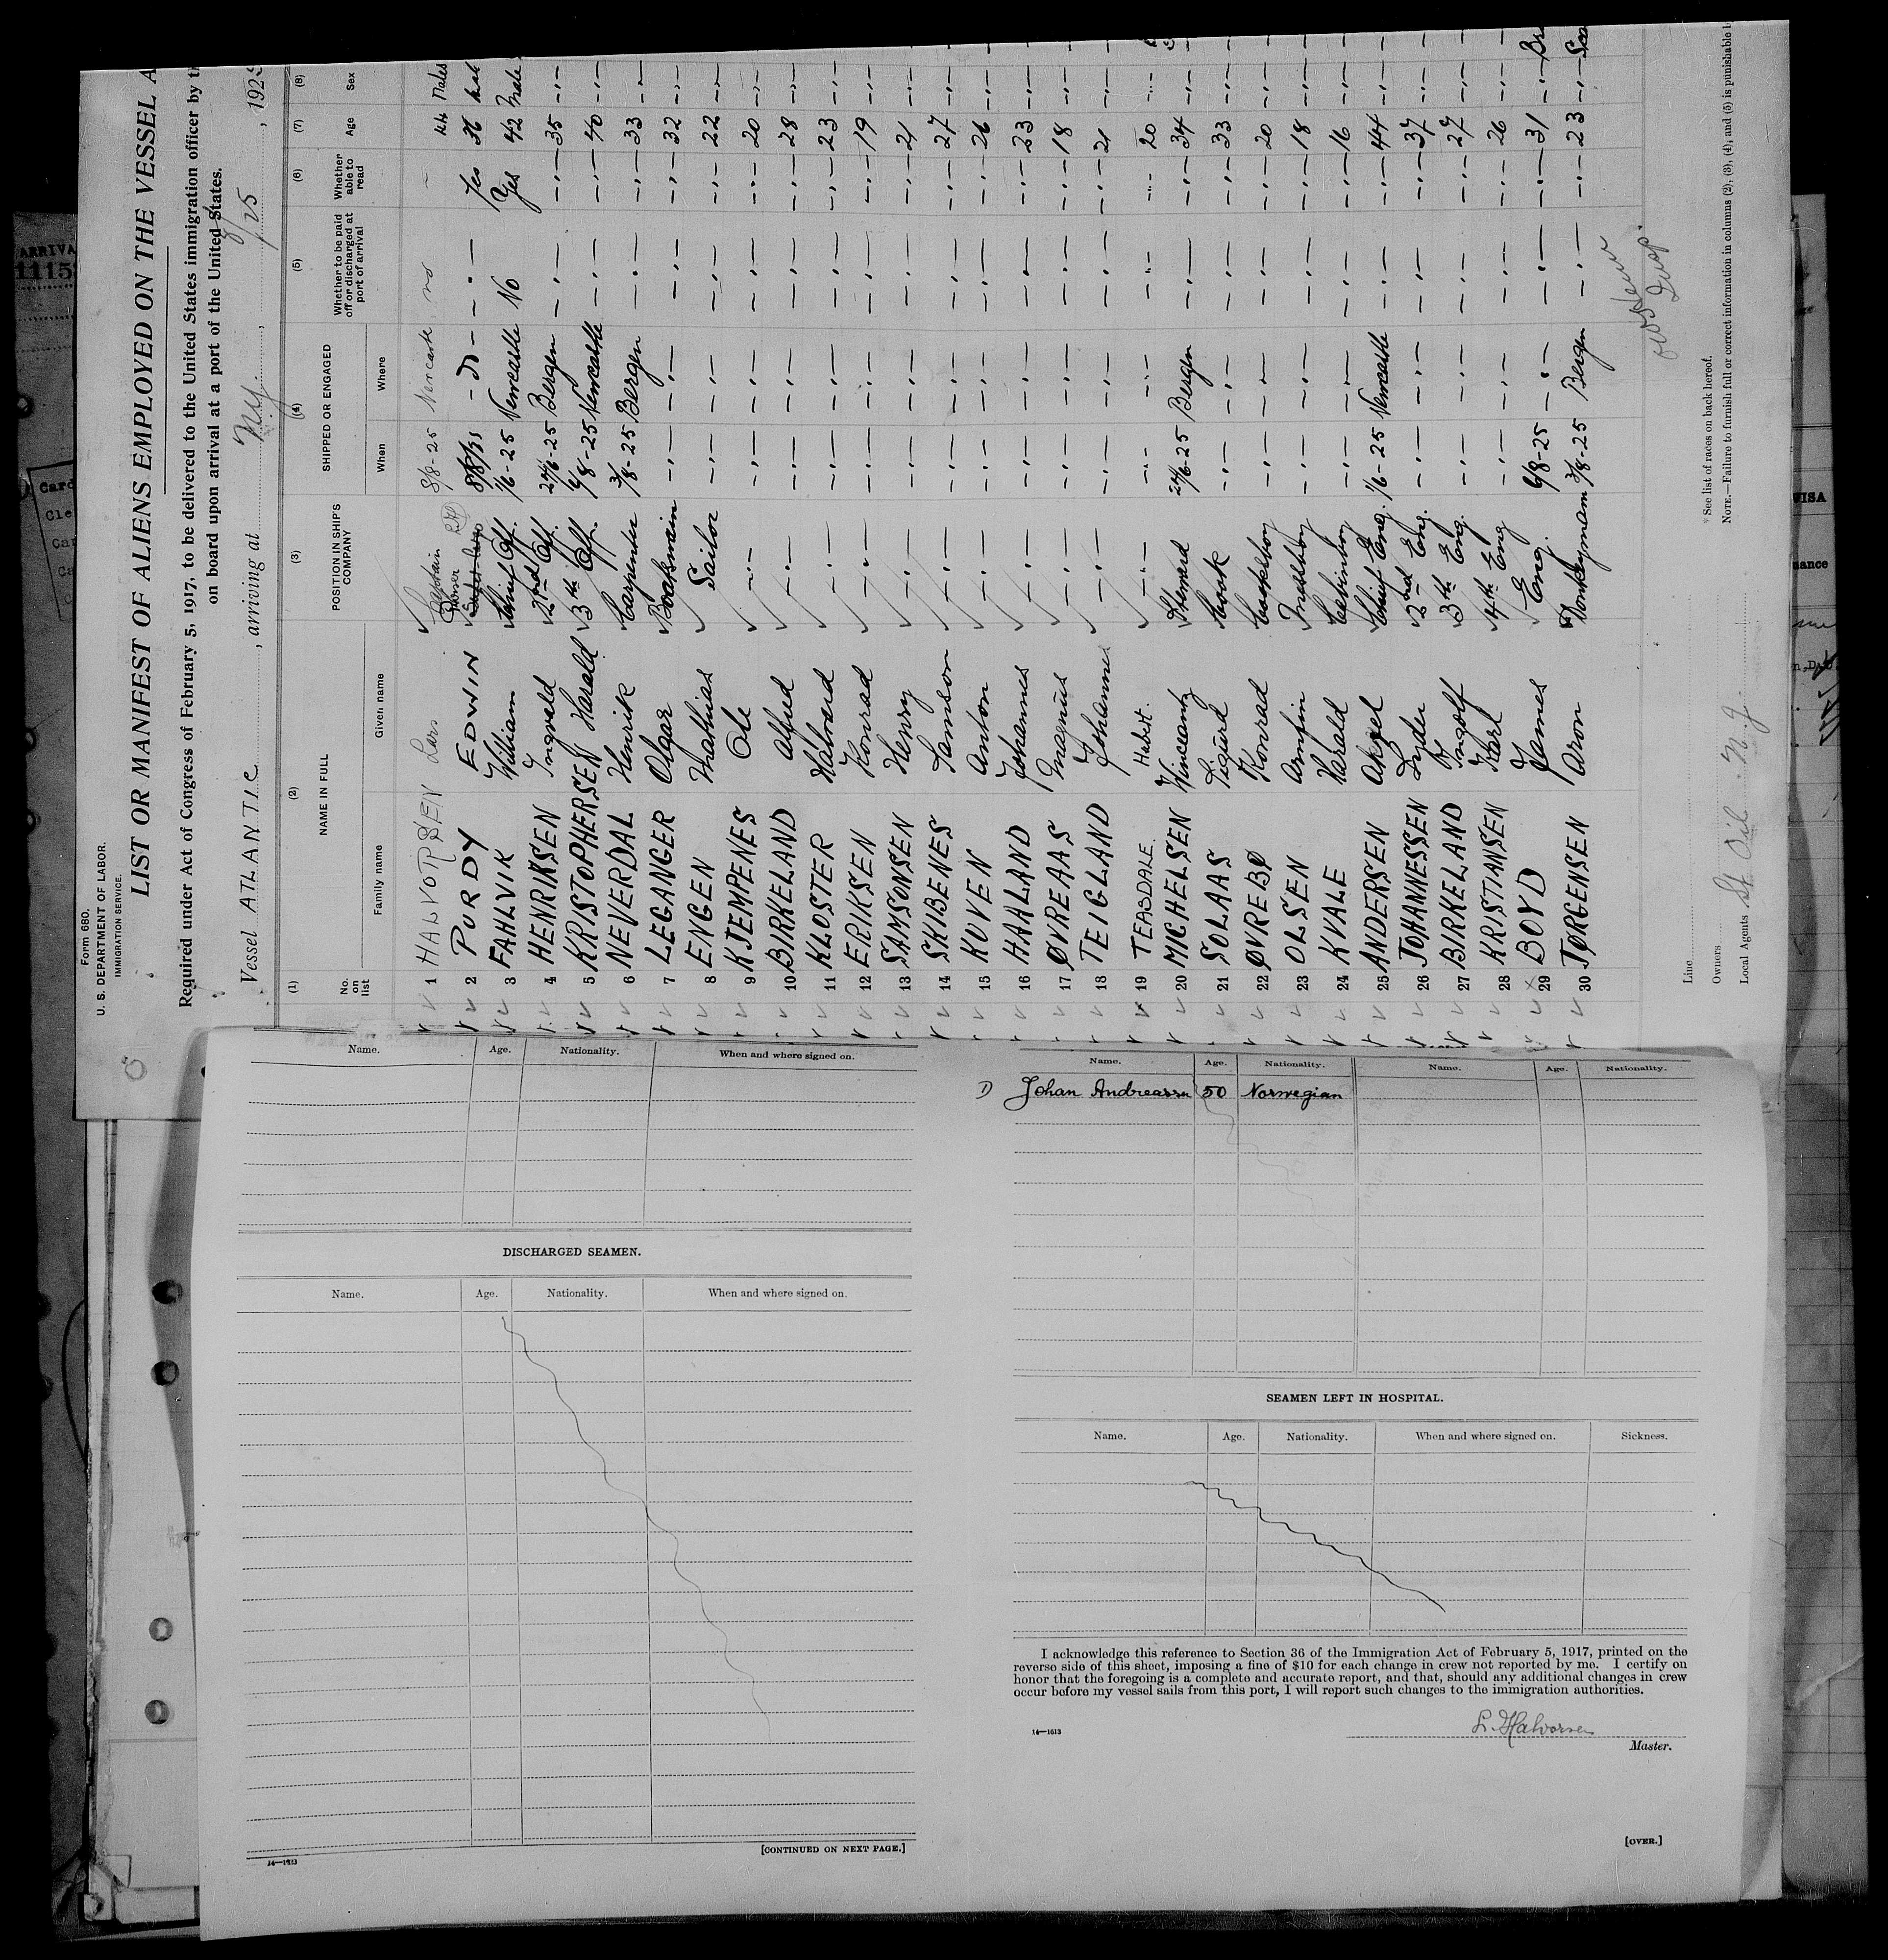 Form 680.
U. S. DEPARTMENT OF LABOR.
IMMIGRATION SERVICE.
LIST OR MANIFEST OF ALIENS EMPLOYED ON THE VESSEL A
Required under Act of Congress of February 5, 1917, to be delivered to the United States immigration officer by
on board upon arrival at a port of the United States.
Vessel ATLANTIC, arriving at N.Y., 192
(1) (2) (3) (4) (5) (6) (7) (8)
No. on list NAME IN FULL POSITION IN SHIP'S COMPANY SHIPPED OR ENGAGED Whether to be paid off or discharged at port of arrival Whether able to read Age Sex
Family name Given name When Where
1 HALVORSEN Lars Captain 8/8-25 Newcastle no Males
2 PURDY EDWIN yes 36
3 FAHLVIK William Chief Off. 1/6-25 Newcastle No Yes 42 Male
4 HENRIKSEN Ingvald 2nd Off. 24/6-25 Bergen -"- -"- 35 -"-
5 KRISTOPHERSEN Harald 3th Off. 6/8-25 Newcastle -"- -"- 40 -"-
6 NEVERDAL Henrik Carpenter 3/8-25 Bergen -"- -"- 33 -"-
7 LEGANGER Olgar Boatswain -"- -"- -"- -"- 32 -"-
8 ENGEN Mathias Sailor -"- -"- -"- -"- 22 -"-
9 KJEMPENES Ole -"- -"- -"- -"- -"- 20 -"-
10 BIRKELAND Alfred -"- -"- -"- -"- -"- 28 -"-
11 KLOSTER Halvard -"- -"- -"- -"- -"- 23 -"-
12 ERIKSEN Konrad -"- -"- -"- -"- -"- 19 -"-
13 SAMSONSEN Henry -"- -"- -"- -"- -"- 21 -"-
14 SKIBENES Samson -"- -"- -"- -"- -"- 27 -"-
15 KUVEN Anton -"- -"- -"- -"- -"- 26 -"-
16 HAALAND Johannes -"- -"- -"- -"- -"- 23 -"-
17 ØVREAAS Magnus -"- -"- -"- -"- -"- 18 -"-
18 TEIGLAND Johannes -"- -"- -"- -"- -"- 21 -"-
19 TEASDALE Hubert. -"- -"- -"- -"- -"- 20 -"-
20 MICHELSEN Winceantz Steward 24/6-25 Bergen -"- -"- 34 -"-
21 SOLAAS Sigurd Cook -"- -"- -"- -"- 33 -"-
22 ØVREBØ Konrad Cooksboy -"- -"- -"- -"- 20 -"-
23 OLSEN Arnfin Messboy -"- -"- -"- -"- 18 -"-
24 KVALE Harald Cabinboy -"- -"- -"- -"- 16 -"-
25 ANDERSEN Aksel Chief Eng. 1/6-25 Newcastle -"- -"- 44 -"-
26 JOHANNESSEN Lyder 2nd Eng. -"- -"- -"- -"- 37 -"-
27 BIRKELAND Ingolf 3th Eng. -"- -"- -"- -"- 27 -"-
28 KRISTIANSEN Karl 4th Eng -"- -"- -"- -"- 26 -"-
29 BOYD James Eng. 6/8-25 -"- -"- -"- 31 -"-
30 JØRGENSEN Aron Donkeyman 3/8-25 Bergen -"- -"- 23 -"-
Line
* See list of races on back hereof.
Owners
NOTE.—Failure to furnish full or correct information in columns (2), (3), (4), and (5) is punishable
Local Agents St Oil N.J.
Name. Age. Nationality. When and where signed on.
DISCHARGED SEAMEN.
Name. Age. Nationality. When and where signed on.
[CONTINUED ON NEXT PAGE.]
Name. Age. Nationality. Name. Age. Nationality.
1) Johan Andreassen 50 Norwegian
SEAMEN LEFT IN HOSPITAL.
Name. Age. Nationality. When and where signed on. Sickness.
I acknowledge this reference to Section 36 of the Immigration Act of February 5, 1917, printed on the
reverse side of this sheet, imposing a fine of $10 for each change in crew not reported by me. I certify on
honor that the foregoing is a complete and accurate report, and that, should any additional changes in crew
occur before my vessel sails from this port, I will report such changes to the immigration authorities.
L. Halvorsen
Master.
14—1613
[OVER.]